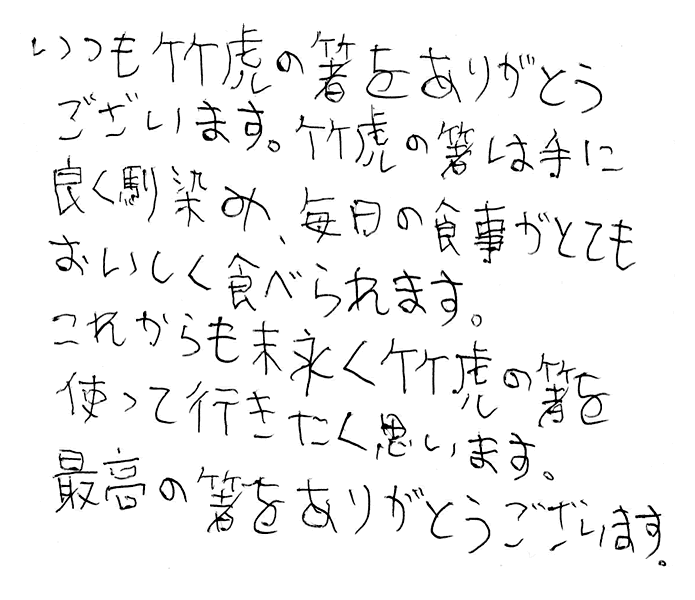 いつも竹虎の箸をありがとう
ございます。竹虎の箸は手に
良く馴染み、毎日の食事がとても
おいしく食べられます。
これからも末永く竹虎の箸を
使って行きたく思います。
最高の箸をありがとうございます。